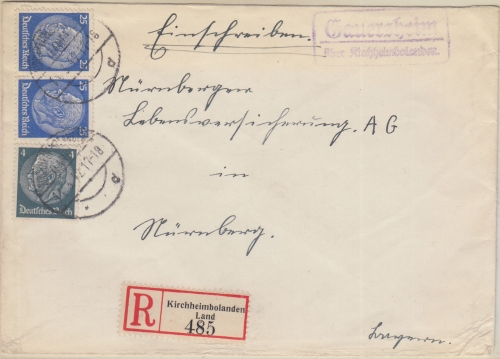 25
Deutsches Reich
25
Deutsches Reich
4
Deutsches Reich
Einschreiben.
Gauersheim
über Kirchheimbolanden.
Nürnberger
Lebensversicherung. AG
in
Nürnberg.
R
Kirchheimbolanden
Land
485
Bayern.